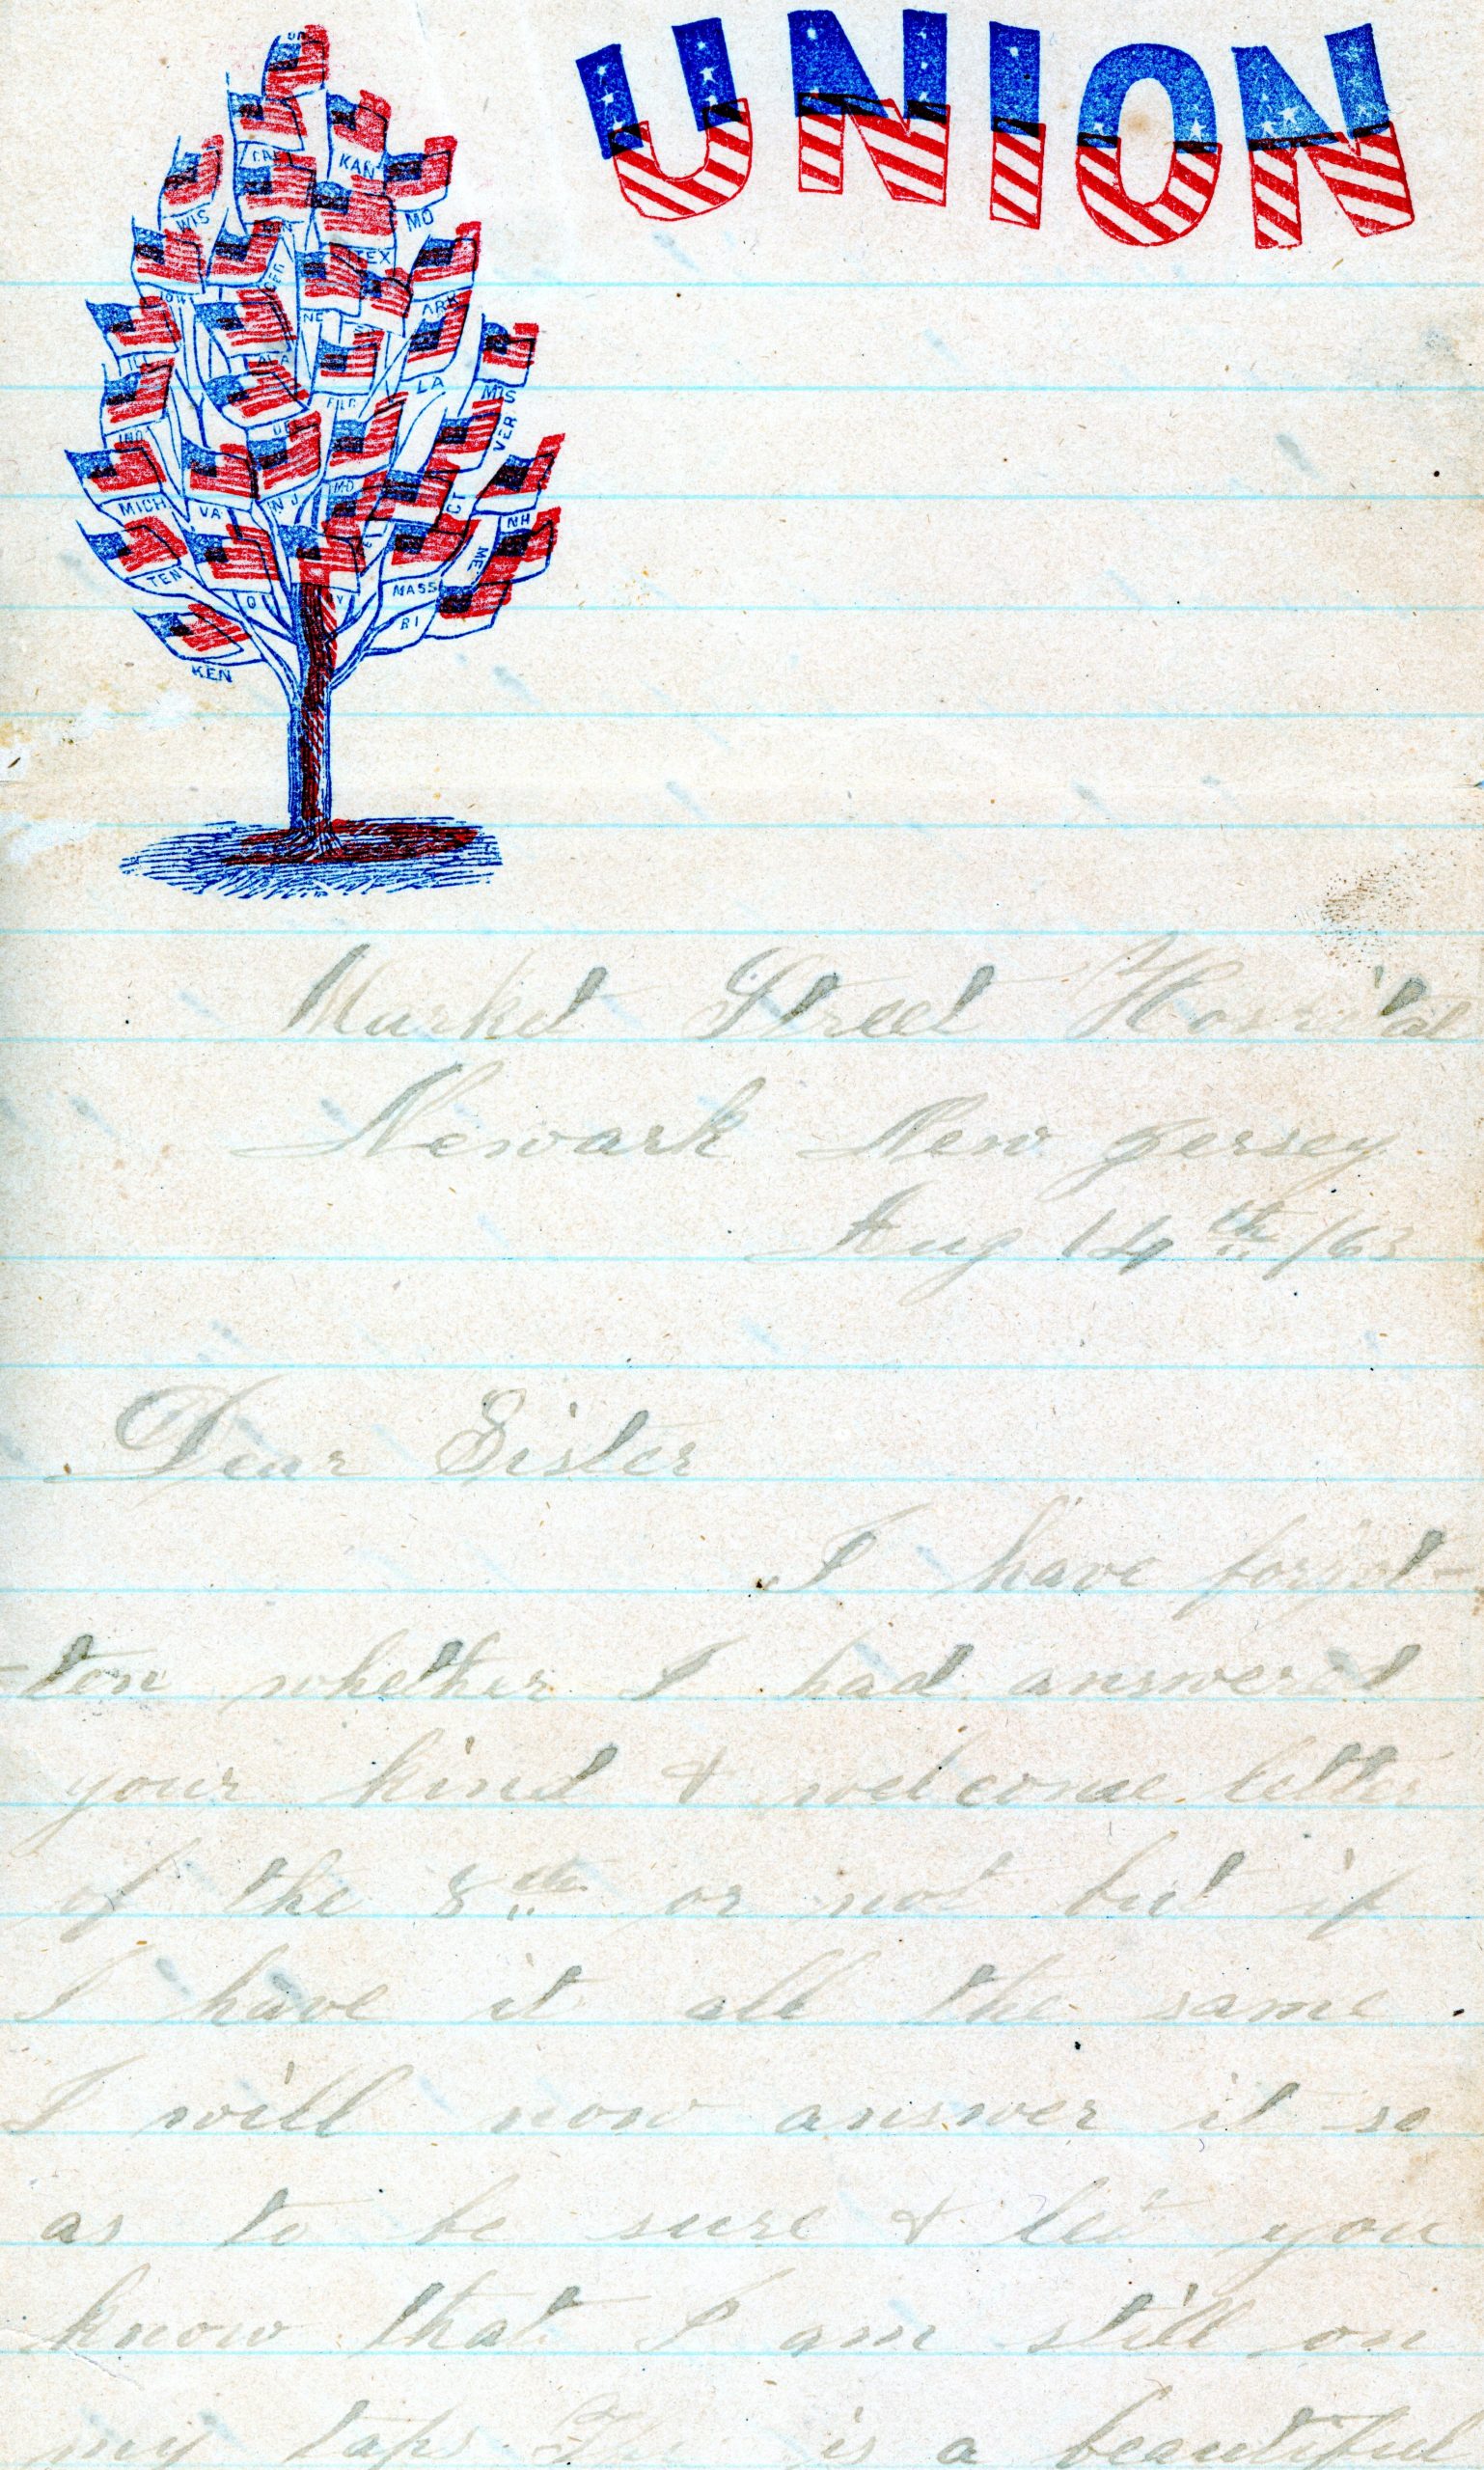 UNION
KAN
WIS
MO
TEX
ARK
NE
ILL
LA
MIS
FLR
VER
IND
DE
MICH
VA
N J
MD
CT
NH
TEN
O
MASS
ME
RI
KEN
Market Street Hospital
Newark New Jersey
Aug 14th /63
Dear Sister
I have forgot-
-ten whether I had answered
your kind & welcome letter
of the 8th or not but if
I have it all the same.
I will now answer it so
as to be sure & let you
know that I am still on
my taps is a beautiful